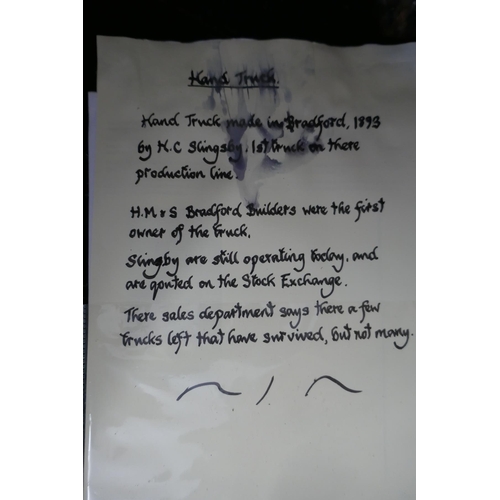 Hand Truck.
Hand Truck made in Bradford, 1893
by H.C Slingsby. 1st truck on there
production line.
H.M & S Bradford Builders were the first
owner of the truck.
Slingby are still operating today, and
are qouted on the Stock Exchange.
There sales department says there a few
trucks left that have survived, but not many.